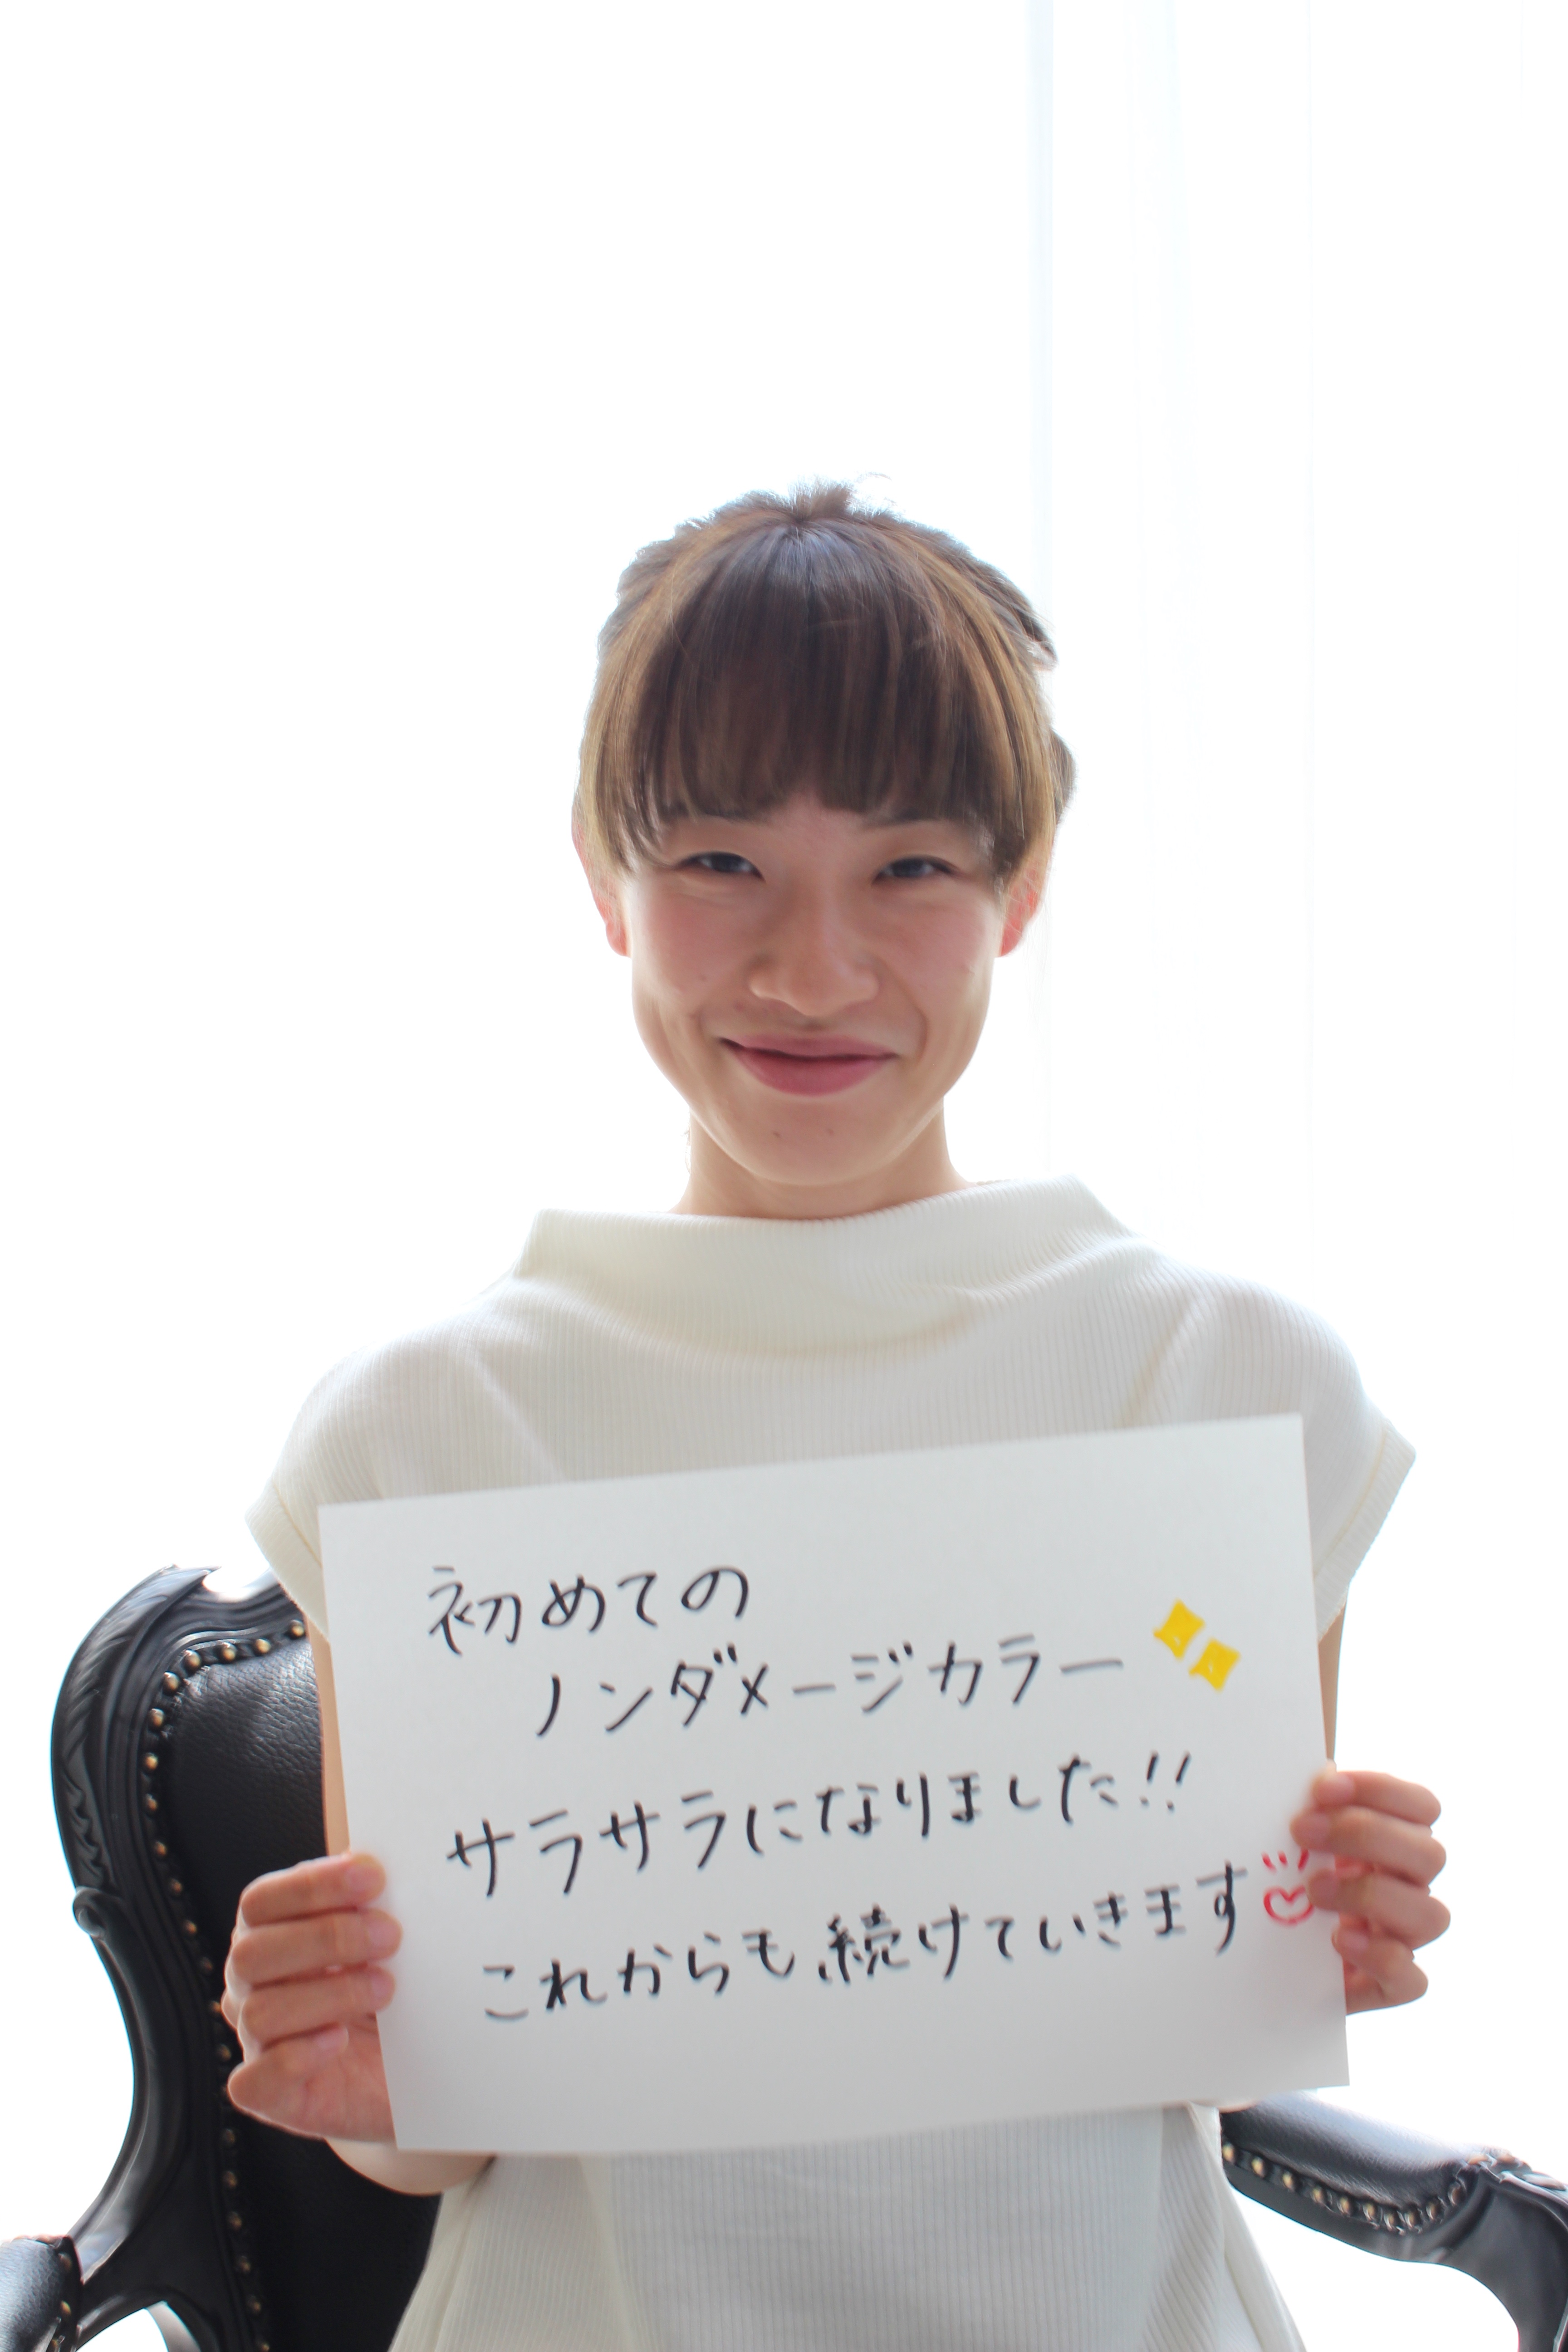 初めての
ノンダメージカラー
サラサラになりました!!
これからも続けていきます